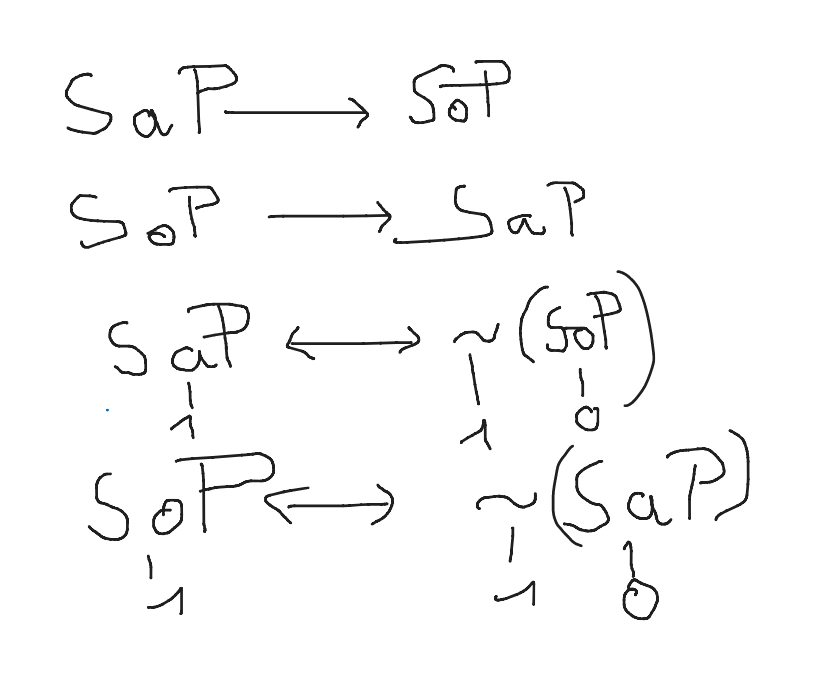 SaP → SoP
SoP → SaP
SaP ↔ ~(SoP)
1 1 0
SoP ↔ ~(SaP)
1 1 0